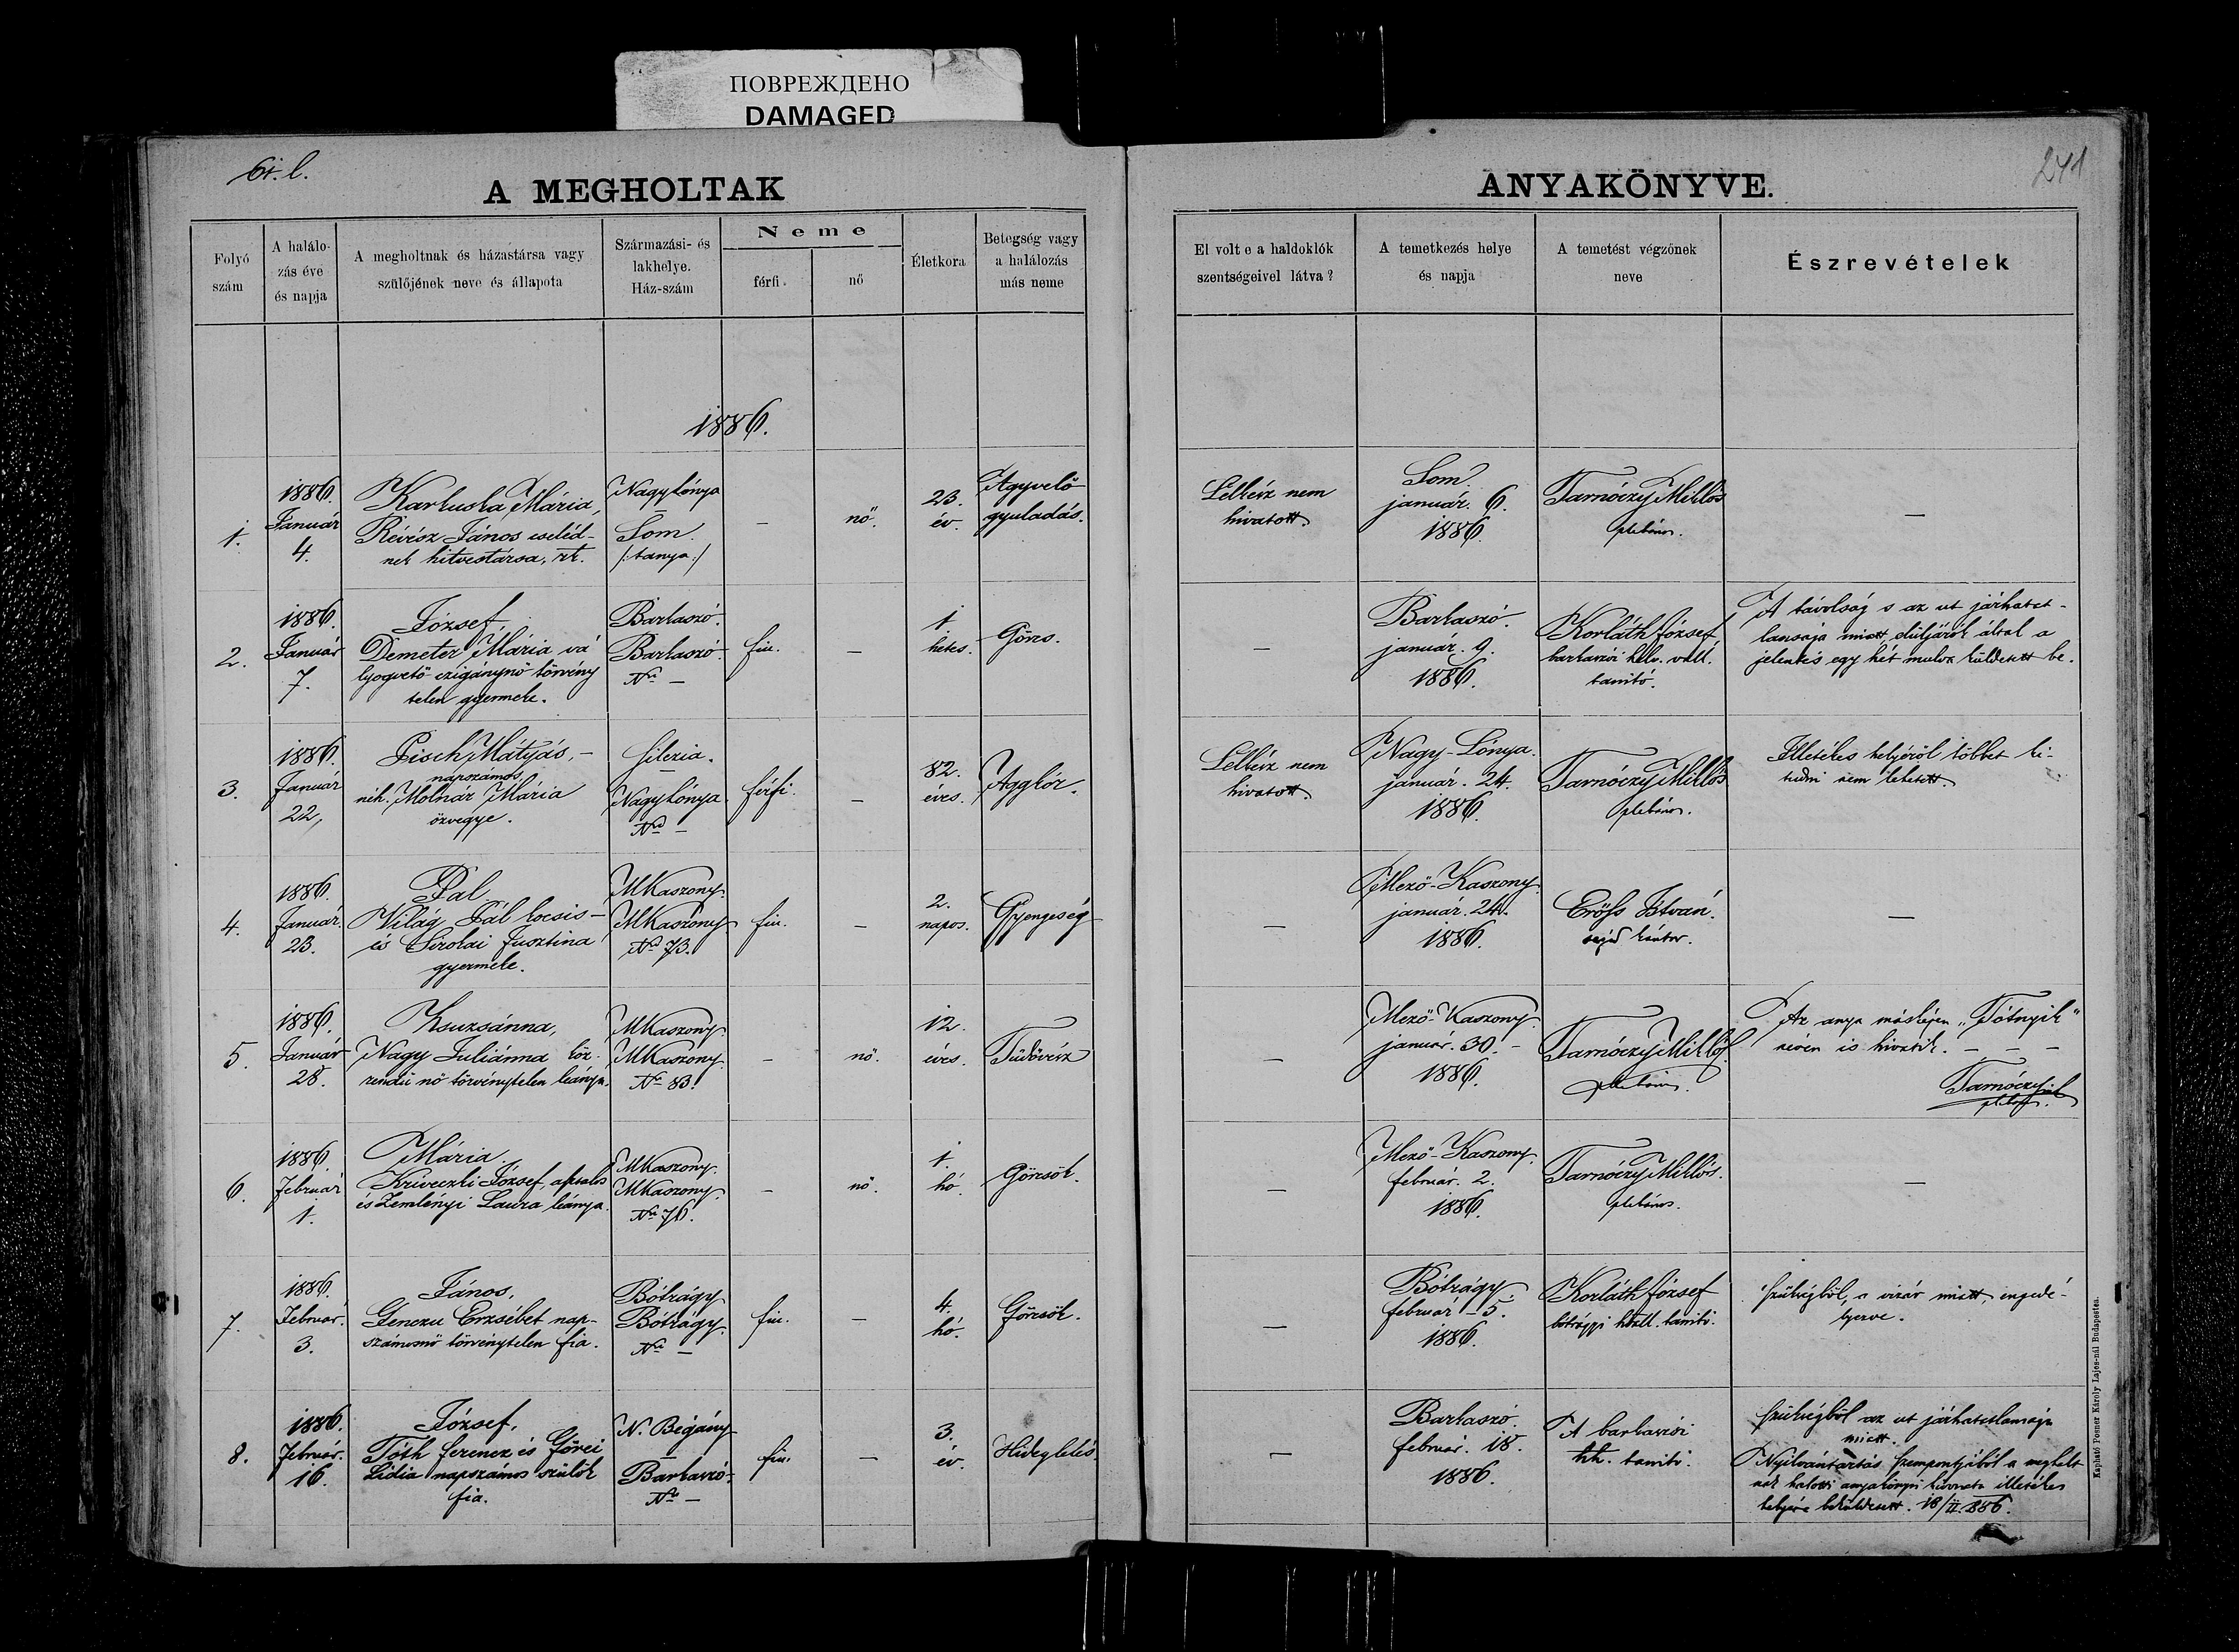 ПОВРЕЖДЕНО
DAMAGED
61. l.
241
A MEGHOLTAK
ANYAKÖNYVE.
Folyó
szám
A halálo-
zás éve
és napja
A megholtnak és házastársa vagy
szülőjének neve és állapota
Származási- és
lakhelye.
Ház-szám
Neme
férfi.
nő
Életkora
Betegség vagy
a halálozás
más neme
El volt e a haldoklók
szentségeivel látva?
A temetkezés helye
és napja
A temetést végzőnek
neve
Észrevételek
1886.
1.
1886.
Január
4.
Karluska Mária,
Révész János cseléd-
nek hitvestársa, rk.
Nagylónya
–
Som.
/:tanya:/
–
nő.
23.
év.
Agyvelő
gyuladás.
Lelkész nem
hivatott.
Som.
január. 6.
1886.
Tarnóczy Miklós
plebános.
–
2.
1886.
Január
7.
József,
Demeter Mária vá
lyogvető czigánynő törvény
telen gyermeke.
Barkaszó.
Barkaszó.
No –
fiu.
–
1
hetes.
Görcs.
–
Barkaszó.
január. 9.
1886.
Korláth József,
barkaszói helv. vall.
tanító.
A távolság s az ut járhatat-
lansaja miatt, elüljárók által a
jelentés egy hét mulva küldetett be.
3.
1886.
Január
22,
Pisch Mátyás, –
napszámos,
néh. Molnár Mária
özvegye.
Silezia.
–
Nagylónya
No –
férfi.
–
82.
éves.
Aggkór.
Lelkész nem
hivatott.
Nagy-Lónya.
január. 24.
1886.
Tarnóczy Miklós
plebános.
Illetékes helyéről többet ki-
tudni nem lehetett.
4.
1886.
Január.
23.
Pál
Világ Pál kocsis –
és Sirolai Jusztina
gyermeke.
MKaszony.
MKaszony
No 73.
fiu.
–
2.
napos.
Gyengeség
–
Mező-Kaszony.
január. 24.
1886.
Erőss István.
segéd kántor.
–
5.
1886.
Január
28.
Zsuzsánna,
Nagy Juliánna köz-
rendü nő törvénytelen leánya.
MKaszony.
MKaszony.
No 83.
–
nő.
12.
éves.
Tüdővész
–
Mező-Kaszony.
január. 30. –
1886.
Tarnóczy Miklós.
plebános.
Az anya másképen „Tótnyik"
néven is hivatik. – – –
Tarnóczy
plebános.
6.
1886.
Február
1.
Mária.
Kriveczki József,
és Zemlényi Laura leánya.
MKaszony.
MKaszony.
No 76.
–
nő.
1.
hó.
Görcsök.
–
Mező-Kaszony.
február. 2.
1886.
Tarnóczy Miklós.
plebános.
–
7.
1886.
Február.
3.
János,
Genczu Erzsébet nap-
számosnő törvénytelen fia.
Bótrágy
Bótrágy.
No –
fiu.
–
4.
hó.
Görcsök.
–
Bótrágy.
február – 5.
1886.
Korláth József
bótrágyi tanitó.
Szükségből, a vizár miatt, engedé-
lyezve.
8.
1886.
Február.
16.
József,
Tóth Ferencz és Görei
Lidia napszámos szülők
fia.
N. Begány
–
Barkaszó.
No –
fiu.
–
3.
év.
Hideglelés.
–
Barkaszó.
február. 18.
1886.
A barkaszói
hh. tanitó.
Szükségből az ut járhatatlansája
miatt.
Nyilvántartás szempontjából a meghalt
nak halotti anyakönyvi kivonata illetékes
helyére beküldetett. 18/II. 886.
Kapható Posner Károly Lajos-nál Budapesten.